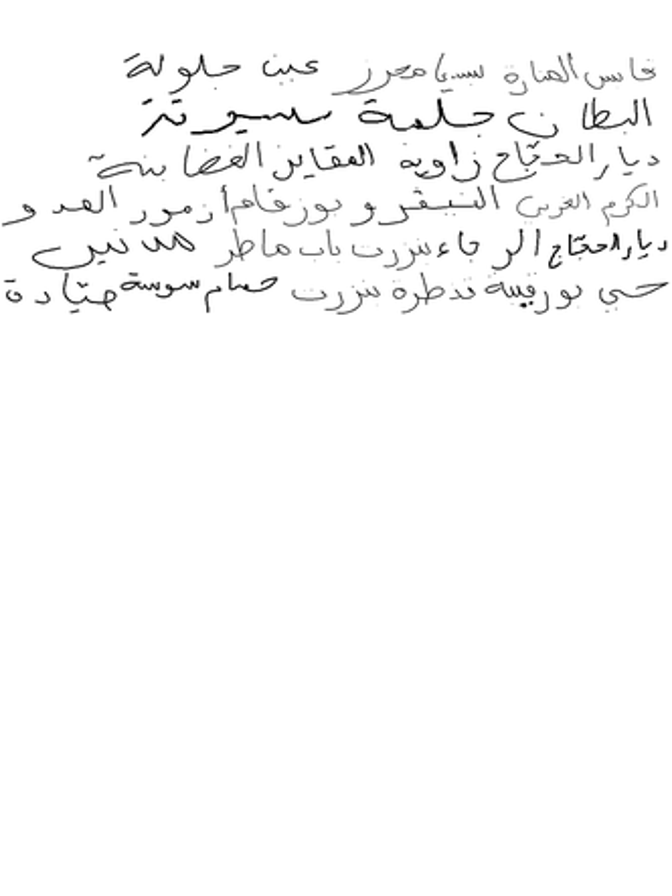 نحاس المنارة سيبا محرز عين جلولة
البطان جلمة سيسيو تنز
ديار الحجّاج زاوية المقايز الغضابنة
الكرم الغربي النيفرو بوزقام أزمور العدو
ديار الحجّاج الرجاء بنزرت باب ماطر مدنين
حي بورقيبة قنطرة بنزرت حمام سوسة صيّادة